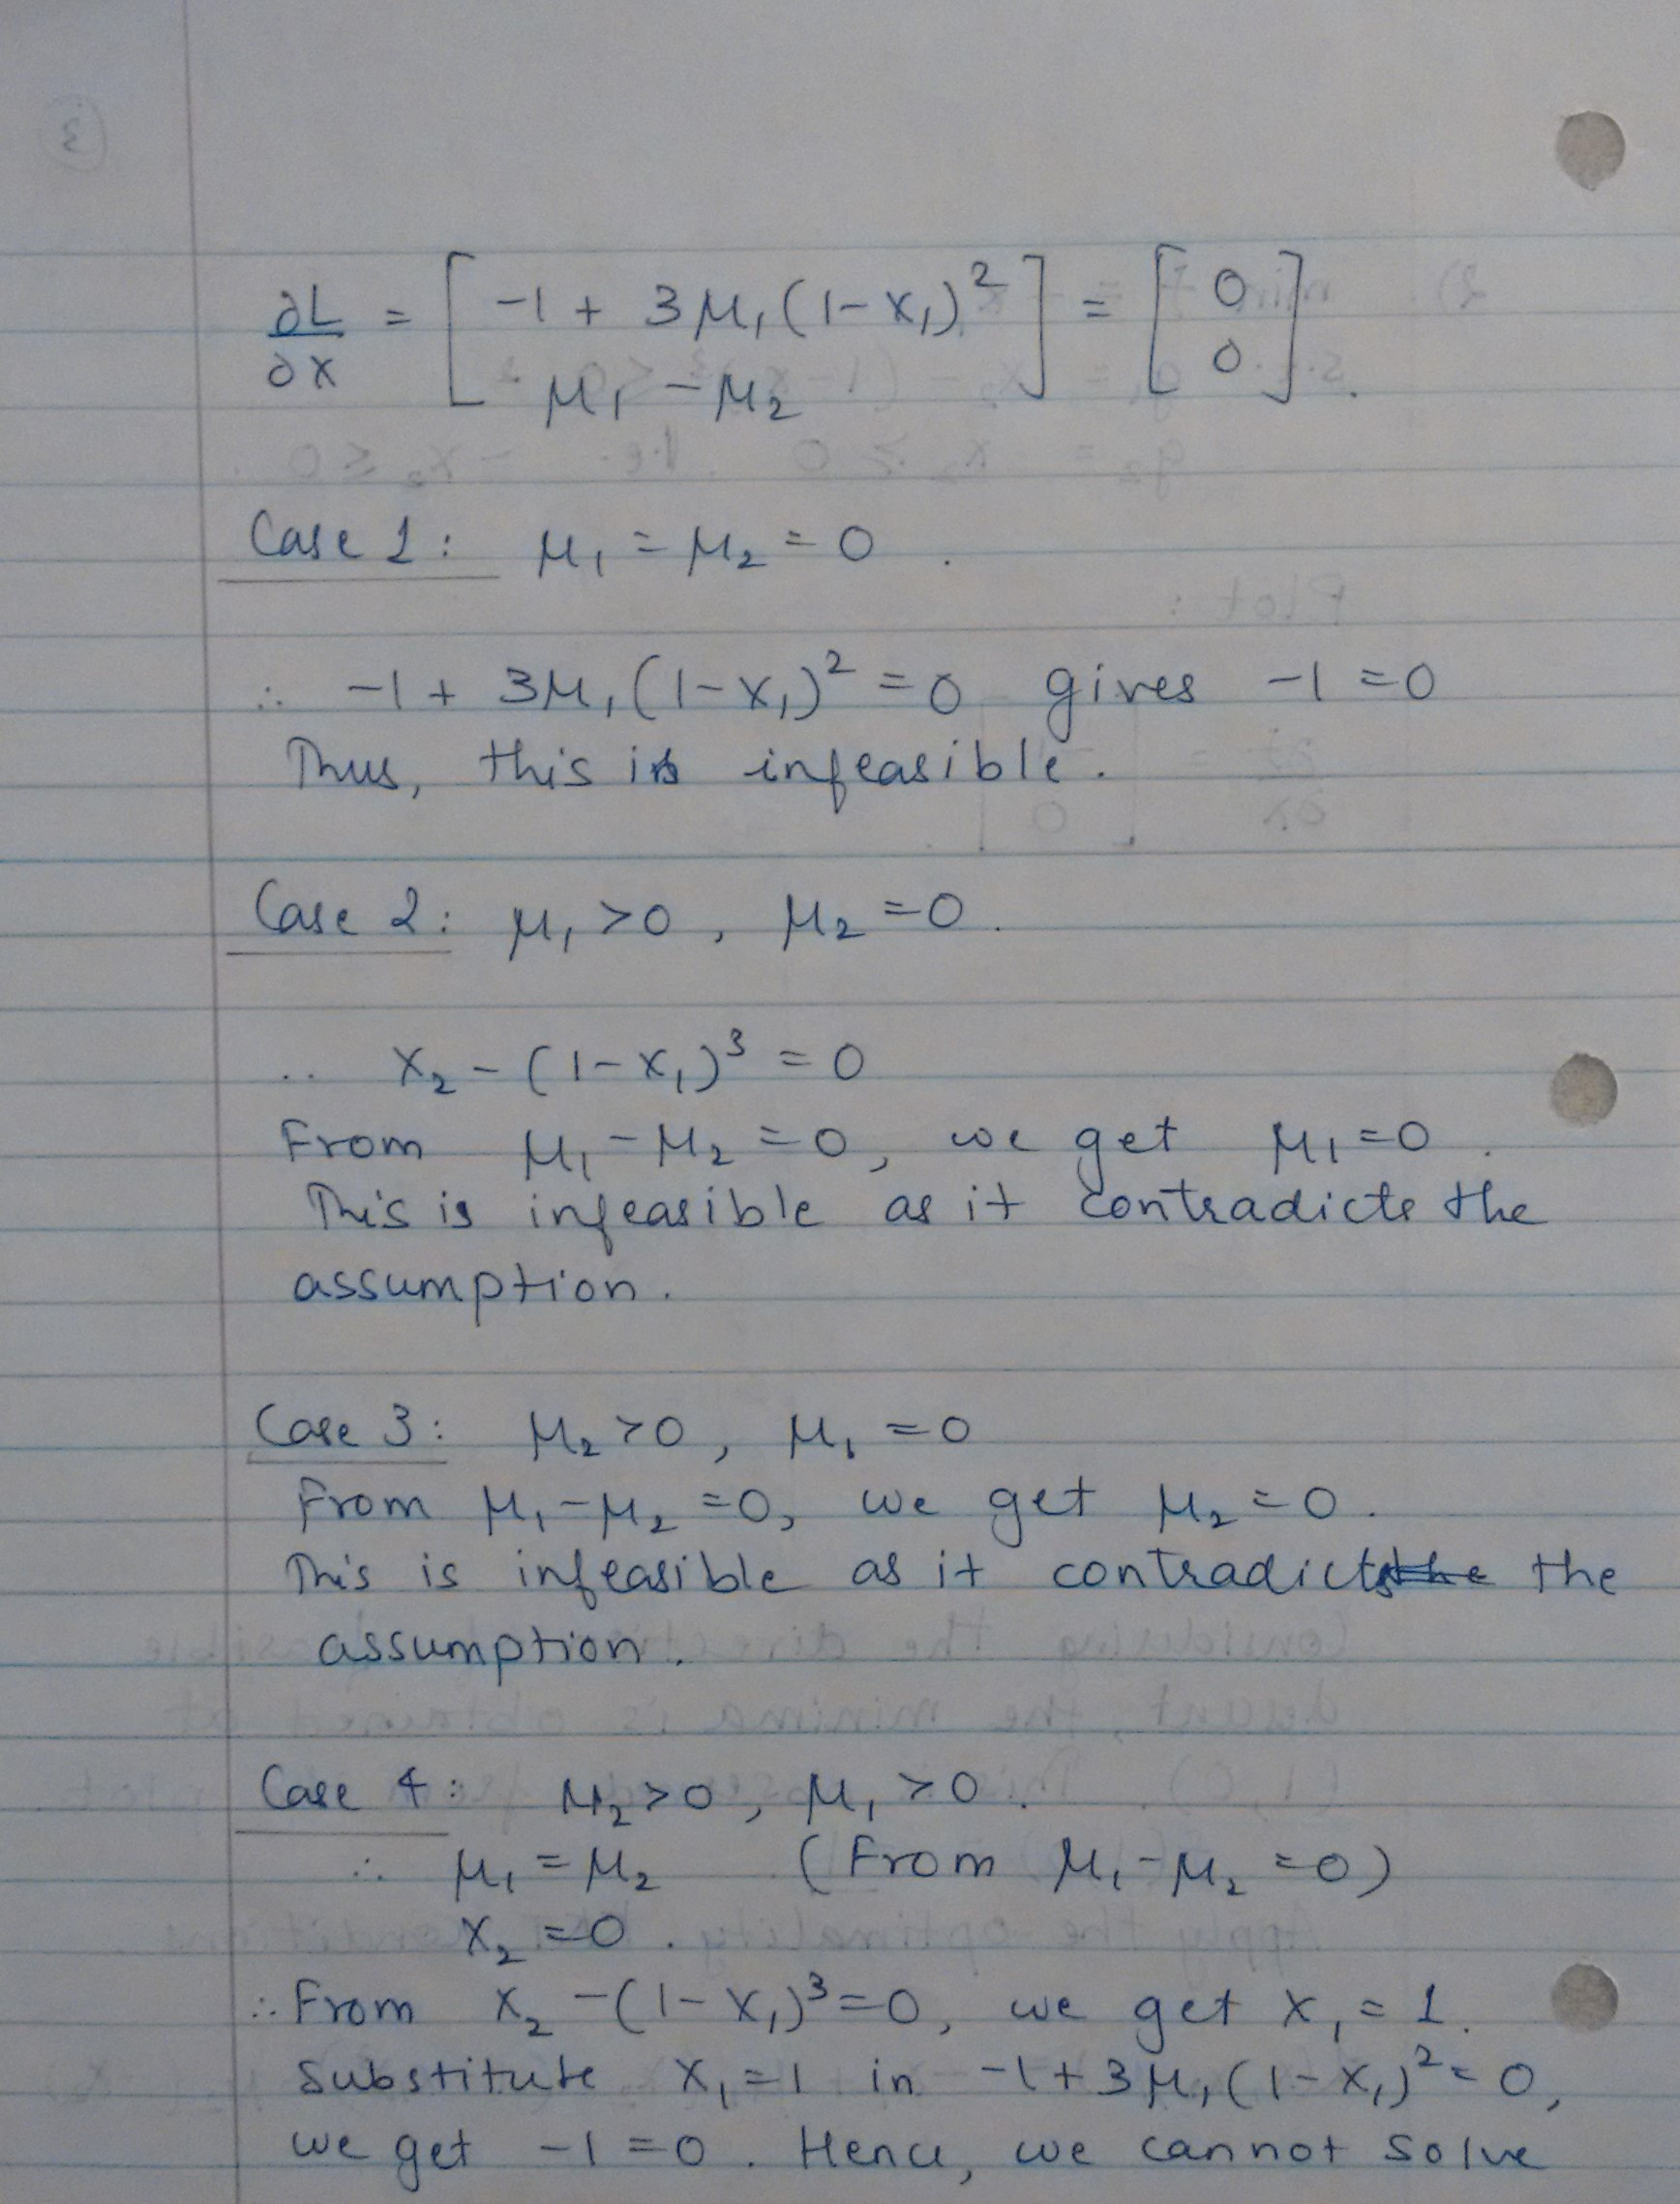 ∂L/∂x = [ -1 + 3μ₁(1-x₁)² ; μ₁ - μ₂ ] = [ 0 ; 0 ].
Case 1: μ₁ = μ₂ = 0.
∴ -1 + 3μ₁(1-x₁)² = 0 gives -1 = 0
Thus, this is infeasible.
Case 2: μ₁ > 0, μ₂ = 0.
∴ x₂ - (1-x₁)³ = 0
From μ₁ - μ₂ = 0, we get μ₁ = 0.
This is infeasible as it contradicts the
assumption.
Case 3: μ₂ > 0, μ₁ = 0
From μ₁ - μ₂ = 0, we get μ₂ = 0.
This is infeasible as it contradicts the
assumption.
Case 4: μ₂ > 0, μ₁ > 0.
∴ μ₁ = μ₂ (From μ₁ - μ₂ = 0)
x₂ = 0.
∴ From x₂ - (1-x₁)³ = 0, we get x₁ = 1.
Substitute x₁ = 1 in -1 + 3μ₁(1-x₁)² = 0,
we get -1 = 0. Hence, we cannot solve